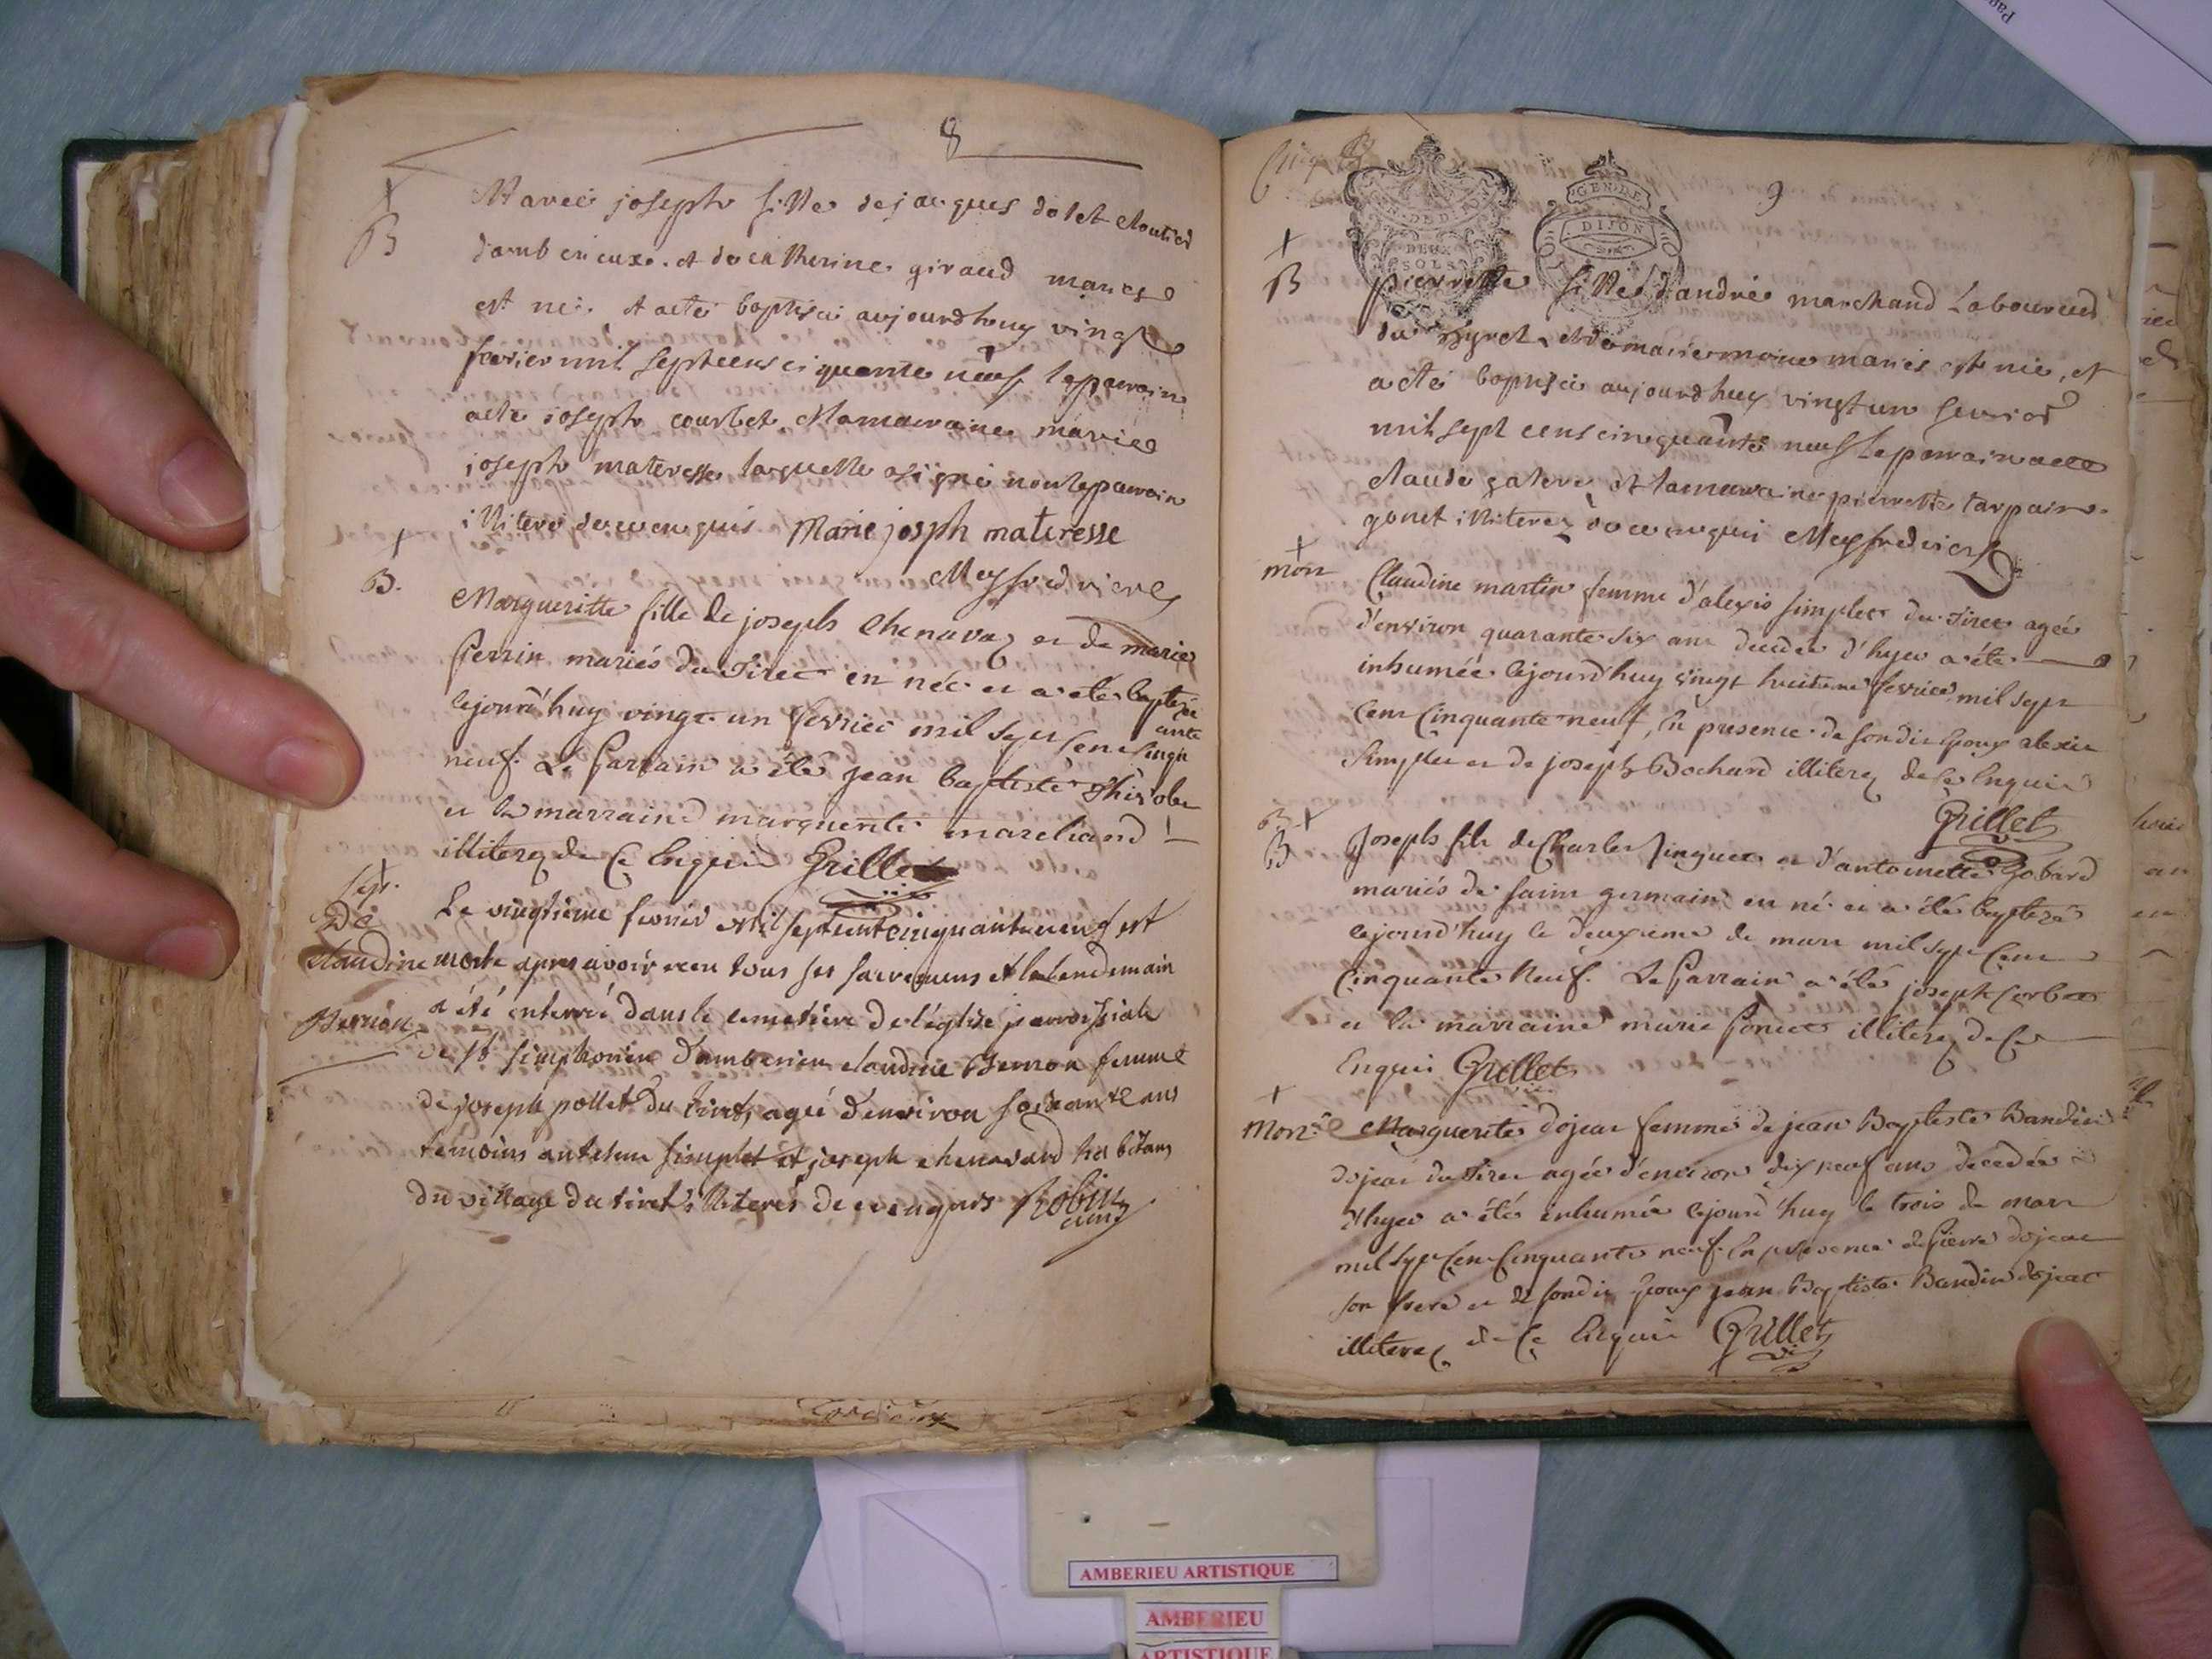 8
B
Marie joseph fille de jacques dolet cloutier
damberieux. et de catherine giraud mariés
est née. et a eté baptisée aujourdhuy vingt
fevrier mil sept cens cinquante neuf le parrain
a eté joseph courbet et la marraine marie
joseph materesse laquelle a signé non le parrain
illiteré de ce enquis Marie joseph materesse
Meyfredieres
B.
Margueritte fille de joseph Chenavaz et de marie
perrin mariés du Tiret est née et a eté baptisée
cejourd'huy vingt un fevrier mil sept cent cinquante
neuf. Le Parrain a été jean baptiste
et la marraine marguerite marchand
illiterez de ce Enquis Grillet
sep.
De
claudine
Le vingtieme fevrier mil sept cent cinquante neuf est
morte apres avoir recu tous ses sacremens et le lendemain
a été enterré dans le cemetiere de l'église parroissiale
de st simphorien d'amberieu claudine femme
de joseph pollet du tiret, agée d'environ soixante ans
temoins antelme simplet et joseph chenavard habitans
du village du tiret illiterés de ce enquis Robin
9
GEN. DE DIJON
DEUX SOLS
GEN. DE
DIJON
B
pierrette fille d'andré marchand Laboureur
du Tyret et de marie moine mariés est née, et
a eté baptisée aujourdhuy vingt un fevrier
mil sept cens cinquante neuf Le parrain a eté
claude et la marraine pierrette tarpain
gonet illiterez de ce enquis Meyfredieres
mort
Claudine martin femme d'alexis simplet du Tiret agée
d'environ quarante six ans decedée d'hyer a été
inhumée cejourd'huy vingt huitieme fevrier mil sept
cent cinquante neuf, En presence de son dit Epoux alexis
Simplet et de joseph Bochard illiterez de ce Enquis
Grillet
B
Joseph fils de Charles et d'antoinette Gobard
mariés de saint germain est né et a été baptisé
cejourd'huy le deuxieme de mars mil sept cent
cinquante Neuf. Le Parrain a été joseph Corbet
et la marraine marie Ponet illiterez de ce
Enquis Grillet
Mort
Marguerite dojat femme de jean Baptiste Bandin
dojat du Tiret agée d'environ dix neuf ans decedée
d'hyer a été inhumée cejourd'huy le trois de mars
mil sept cent cinquante neuf. En presence de Pierre dojat
son frere et de son dit Epoux jean Baptiste Bandin dojat
illiterez de ce Enquis Grillet
AMBERIEU ARTISTIQUE
AMBERIEU
ARTISTIQUE